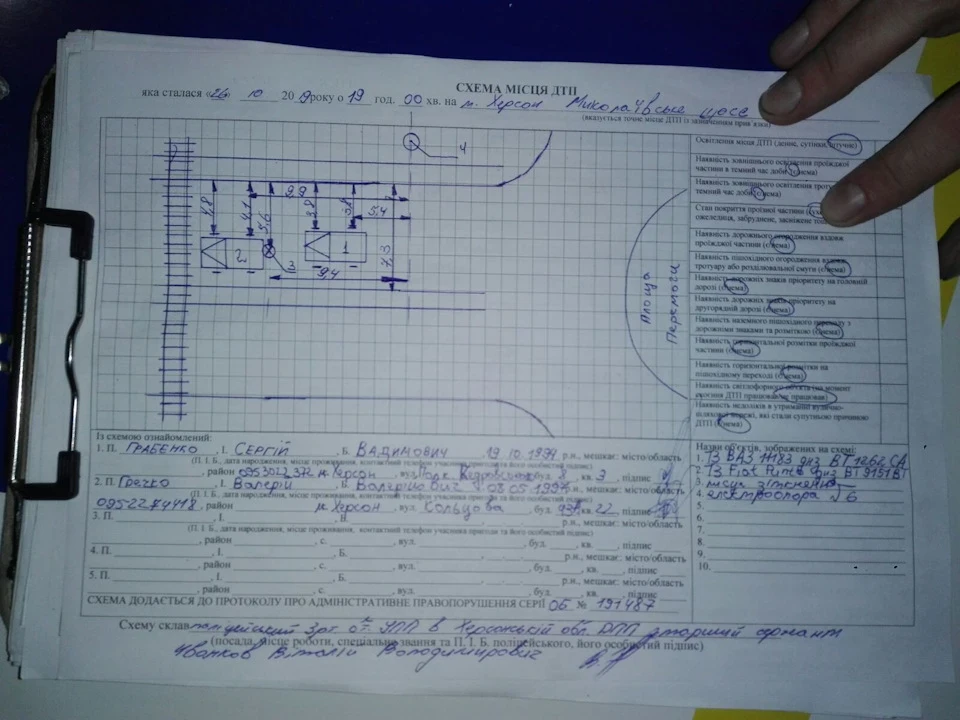 СХЕМА МІСЦЯ ДТП
яка сталася «26» 10 2019 року о 19 год. 00 хв. на м. Херсон Миколаївське шосе
(вказується точне місце ДТП із зазначенням прив'язки)
4
9.9
4.8
4.1
5.6
3.8
3.8
5.4
7.3
2
3
1
9.4
Площа
Перемоги
Освітлення місця ДТП (денне, сутінки, штучне)
Наявність зовнішнього освітлення проїжджої
частини в темний час доби (є, нема)
Наявність зовнішнього освітлення
темний час доби (є, нема)
Стан покриття проїзної частини
ожеледиця, забруднене, засніжене
Наявність дорожнього огородження вздовж
проїжджої частини (є, нема)
Наявність пішохідного огородження вздовж
тротуару або розділювальної смуги (є, нема)
Наявність дорожніх знаків пріоритету на головній
дорозі (є, нема)
Наявність дорожніх знаків пріоритету на
другорядній дорозі (є, нема)
Наявність наземного пішохідного переходу з
дорожніми знаками та розміткою (є, нема)
Наявність горизонтальної розмітки проїжджої
частини (є, нема)
Наявність горизонтальної розмітки на
пішохідному переході (є, нема)
Наявність світлофорного об'єкта (на момент
скоєння ДТП працював, не працював)
Наявність недоліків в утриманні вулично-
шляхової мережі, які стали супутньою причиною
ДТП (є, нема)
Із схемою ознайомлений:
1. П. Грабенко, І. Сергій, Б. Вадимович 19.10.1994 р.н., мешкає: місто/область
(П. І. Б., дата народження, місце проживання, контактний телефон учасника пригоди та його особистий підпис)
, район м. Херсон, вул. буд. кв. 3, підпис
2. П. Гречко І. Валерій Б. Валерійович 08.05.1997 р.н., мешкає: місто/область
(П. І. Б., дата народження, місце проживання, контактний телефон учасника пригоди та його особистий підпис)
0952274418, район м. Херсон, вул. Кольцова, буд. кв. 22, підпис
3. П. , І. , Б. р.н., мешкає: місто/область
(П. І. Б., дата народження, місце проживання, контактний телефон учасника пригоди та його особистий підпис)
, район , с. , вул. , буд. , кв. , підпис
4. П. , І. , Б. р.н., мешкає: місто/область
, район , с. , вул. , буд. , кв. , підпис
5. П. , І. , Б. р.н., мешкає: місто/область
, район , с. , вул. , буд. , кв. , підпис
Назви об'єктів, зображених на схемі:
1. ТЗ ВАЗ 11183 днз ВТ1262СА
2. ТЗ Fiat Punto днз ВТ9151ВТ
3. місце зіткнення
4. електроопора №6
5.
6.
7.
8.
9.
10.
СХЕМА ДОДАЄТЬСЯ ДО ПРОТОКОЛУ ПРО АДМІНІСТРАТИВНЕ ПРАВОПОРУШЕННЯ СЕРІЇ ОБ № 191487
Схему склав поліцейський УПП в Херсонській обл. ДПП старший сержант
(посада, місце роботи, спеціальне звання та П. І. Б. поліцейського, його особистий підпис)
Віталій Володимирович